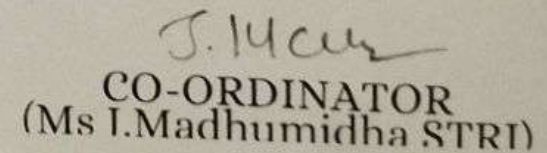 CO-ORDINATOR
(Ms I.Madhumidha STRI)